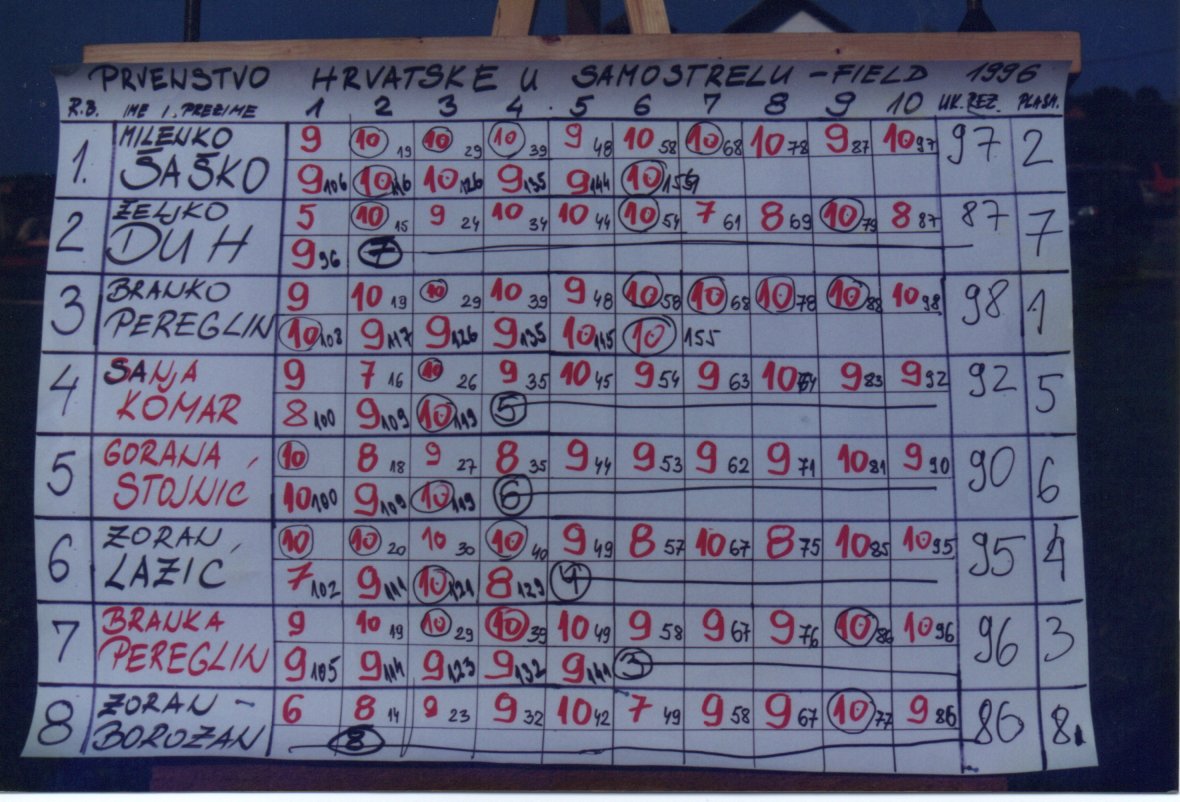 PRVENSTVO HRVATSKE U SAMOSTRELU - FIELD 1996
R.B. IME I PREZIME 1 2 3 4 5 6 7 8 9 10 UK.REZ. PLASM.
1. MILENKO 9 10 19 10 29 10 39 9 48 10 58 10 68 10 78 9 87 10 97 97 2
ŠAŠKO 9 106 10 116 10 126 9 135 9 144 10 154
2 ŽELJKO 5 10 15 9 24 10 34 10 44 10 54 7 61 8 69 10 79 8 87 87 7
DUH 9 96 7
3 BRANKO 9 10 19 10 29 10 39 9 48 10 58 10 68 10 78 10 88 10 98 98 1
PEREGLIN 10 108 9 117 9 126 9 135 10 145 10 155
4 SANJA 9 7 16 10 26 9 35 10 45 9 54 9 63 10 9 83 9 92 92 5
KOMAR 8 100 9 109 10 119 5
5 GORANA 10 8 18 9 27 8 35 9 44 9 53 9 62 9 71 10 81 9 90 90 6
STOJNIĆ 10 100 9 109 10 119 6
6 ZORAN 10 10 20 10 30 10 40 9 49 8 57 10 67 8 75 10 85 10 95 95 4
LAZIĆ 7 102 9 111 10 121 8 129 4
7 BRANKA 9 10 19 10 29 10 39 10 49 9 58 9 67 9 76 10 86 10 96 96 3
PEREGLIN 9 105 9 114 9 123 9 132 9 141 3
8 ZORAN 6 8 14 9 23 9 32 10 42 7 49 9 58 9 67 10 77 9 86 86 8.
BOROZAN 8